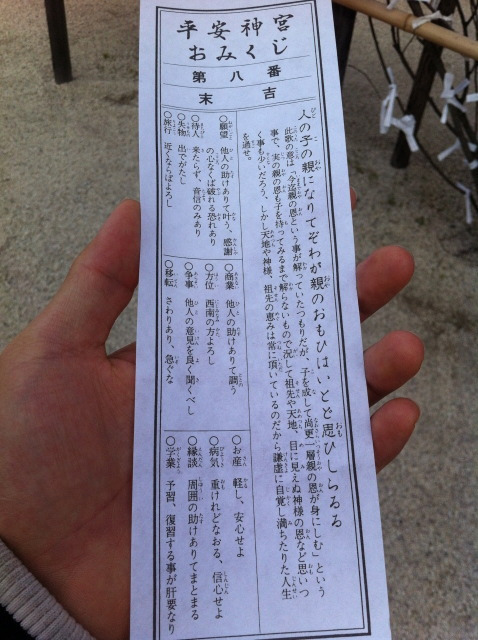 平安神宮
おみくじ
第八番
末吉
人の子の親になりてぞわが親のおもひはいとど思ひしらるる
此歌の意は「今迄親の恩という事が解っていたつもりだが、子を成して尚更一層親の恩が身にしむ」という
事で、実の親の恩も子を持ってみるまで解らないもので況して祖先や天地、目に見えぬ神様の恩など思いつ
く事も少いだろう。しかし天地や神様、祖先の恵みは常に頂いているのだから謙虚に自覚し満ちたりた人生
を過せ。
○願望 他人の助けありて叶う、感謝
の心なくば破れる恐れあり
○待人 来たらず、音信のみあり
○失物 出でがたし
○旅行 近くならばよろし
○商業 他人の助けありて調う
○方位 西南の方よろし
○争事 他人の意見を良く聞くべし
○移転 さわりあり、急ぐな
○お産 軽し、安心せよ
○病気 重けれどなおる、信心せよ
○縁談 周囲の助けありてまとまる
○学業 予習、復習する事が肝要なり